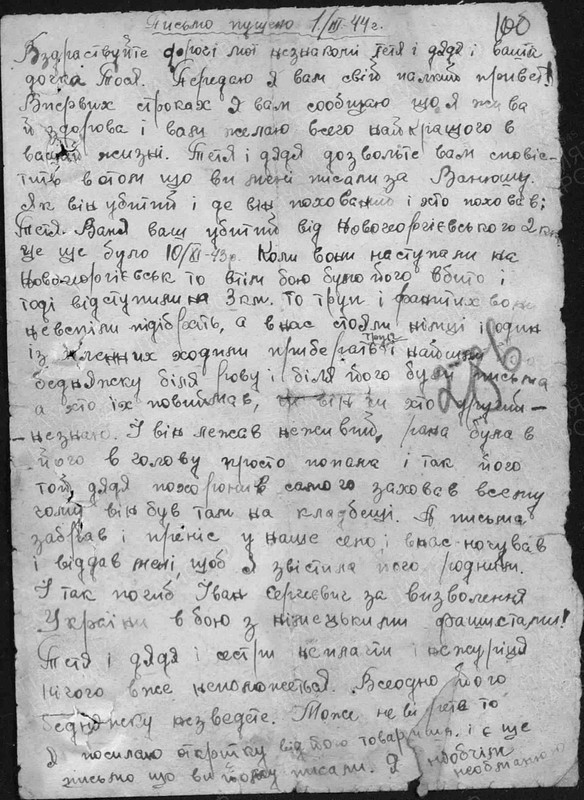 Письмо пущено 1/III-44 г.
100
Вздраствуйте дорогі мої незнакомі тетя і дядя і ваша
дочка Тося. Передаю я вам свій палкий привєт!
Впервих строках я вам сообщаю що я жива
й здорова і вам желаю всего найкращого в
вашій жизні. Тетя і дядя дозвольте вам сповіс-
тить о том що ви мені писали за Ванюшу.
Як він убитий і де він похований і хто поховав;
Тетя. Ваня ваш убитий від Новогоргієвського 2 км
це ще було 10/XI-43р. Коли вони наступали на
Новогоргієвськ то втім бою було його вбито і
тоді відступили на 3 км. то трупі і раніних вони
невспіли підібрать, а внас стояли німці і один
із пленних ходили приберать трупи і найшли
бедняжку біля рову і біля його були письма
а хто їх повиймав, чи він чи хто другий-
-незнаю. І він лежав неживий, рана була в
його в голову просто попала і так його
той дядя похоронив самого заховав
він був там на кладбещі. А письма
забрав і приніс у наше село, і внас ночував
і віддав мені, щоб я звістила його родним.
І так погиб Іван Сергеєвич за визволення
України в бою з німецькими фашистами!
Тетя і дядя і сестри неплачте і нежуріця
нічого вже непоможеться. Всеодно його
бедняжку незведете. Може не вірите то
я посилаю откритку від його товариша. і є ще
письмо що ви йому писали. Я